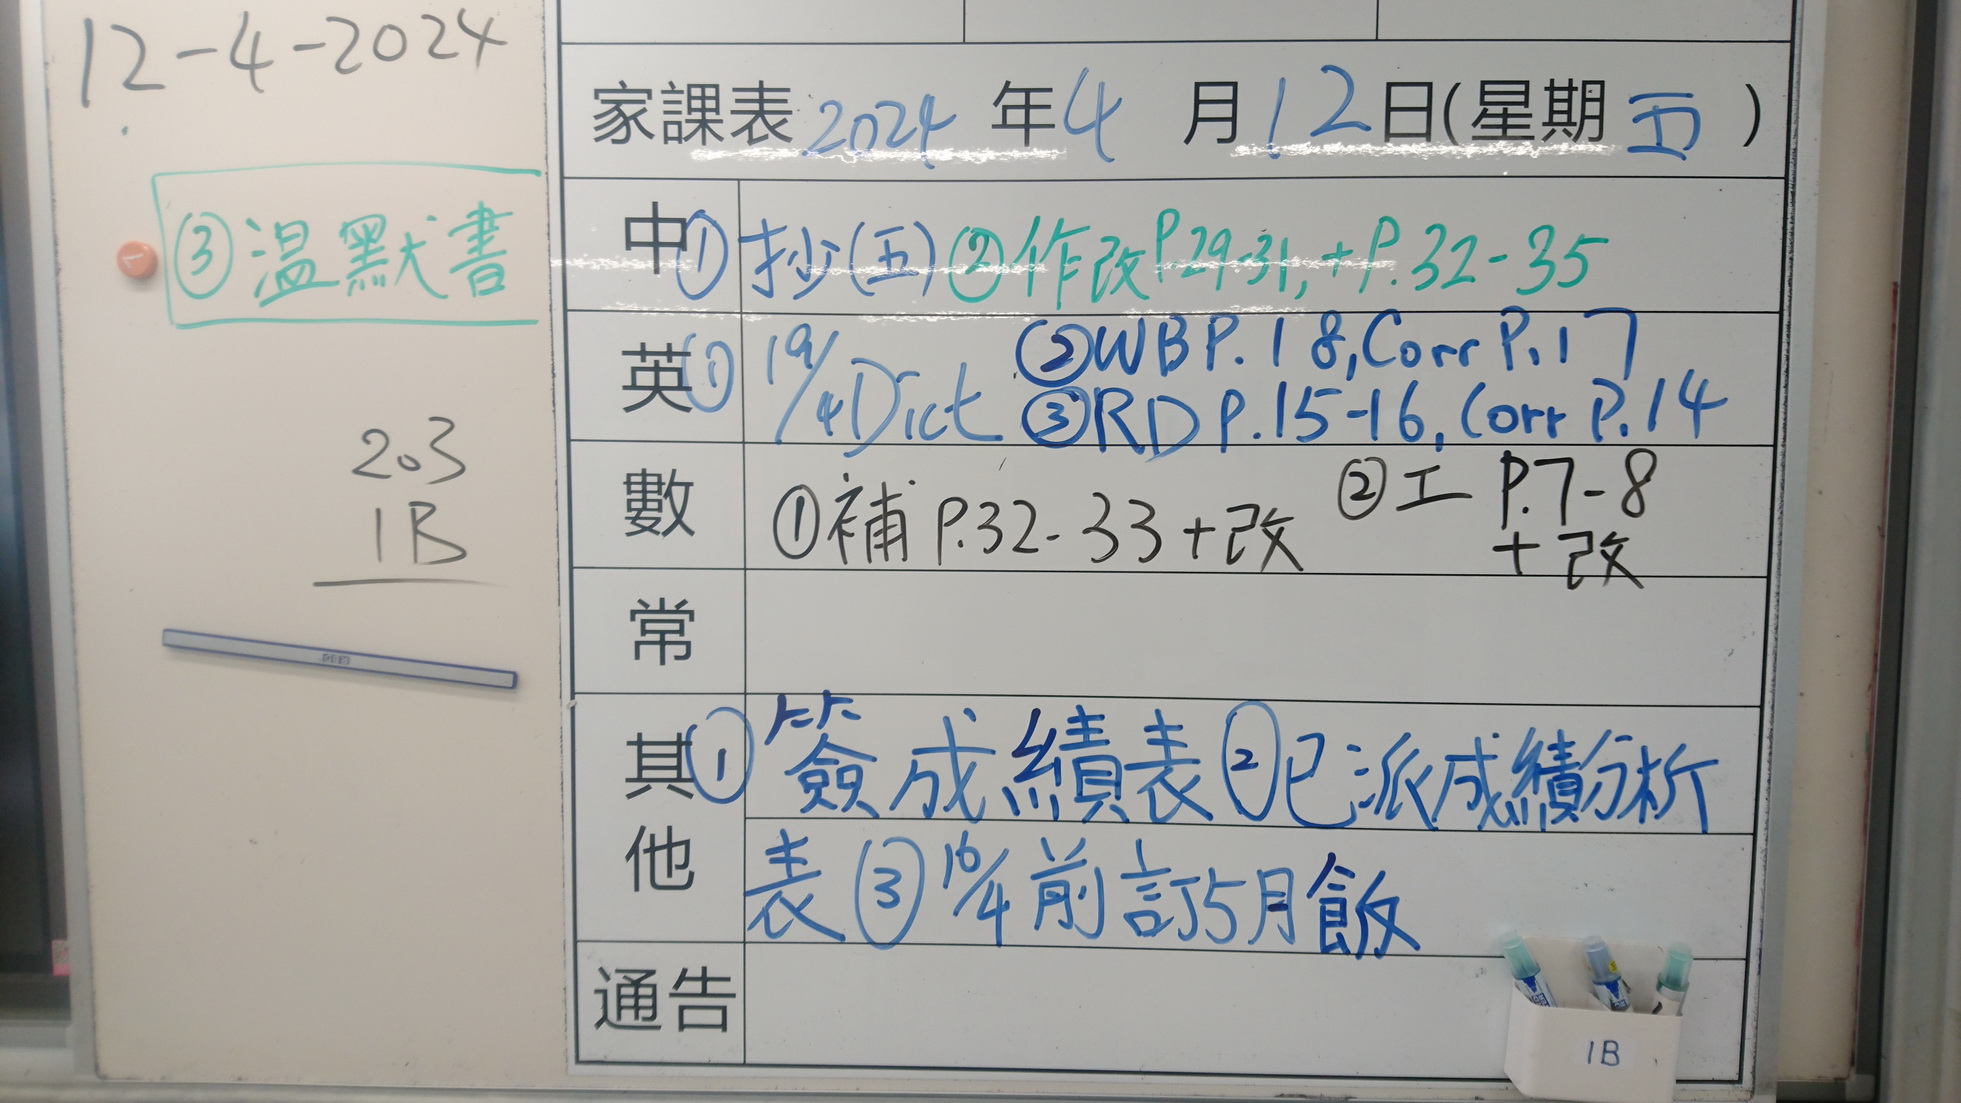 12-4-2024
家課表 2024 年 4 月 12 日(星期 五 )
③温默書
中 ① 抄(五) ② 作改P.29-31, + P.32-35
英 ① 19/4 Dict ② WB P.18, Corr P.17
③ RD P.15-16, Corr P.14
203
1B
數 ① 補 P.32-33 + 改 ② 工 P.7-8
+ 改
常
其他 ① 簽成績表 ② 已派成績分析
表 ③ 16/4 前訂5月飯
通告
1B